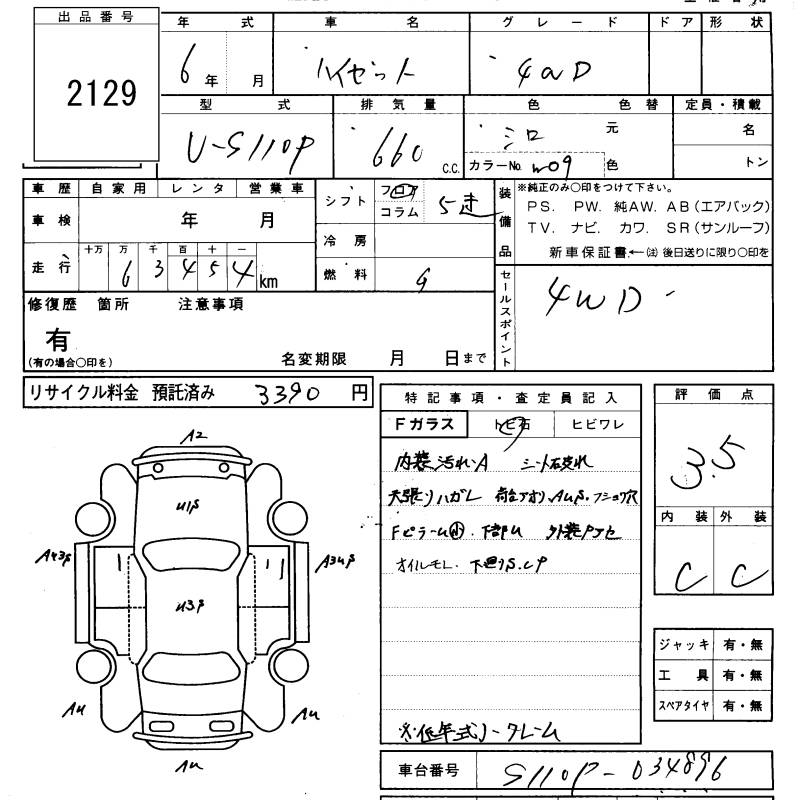 出品番号
2129
年 式 車 名 グレード ドア 形 状
6年 月 ハイゼット 4WD
型 式 排 気 量 色 色 替 定員・積載
U-S110P 660 C.C. シロ 元 名
カラーNo. W09 色 トン
車 歴 自家用 レンタ 営業車
車 検 年 月
走 行 十万 万 千 百 十 一
6 3 4 5 4 km
シフト フロア コラム 5速
冷 房
燃 料 G
装備品
※純正のみ○印をつけて下さい。
PS. PW. 純AW. AB(エアバック)
TV. ナビ. カワ. SR(サンルーフ)
新車保証書←㊟ 後日送りに限り○印を
セールスポイント
4WD
修復歴 箇所 注意事項
有
(有の場合○印を)
名変期限 月 日まで
リサイクル料金 預託済み 3390 円
特記事項・査定員記入
Fガラス トビ石 ヒビワレ
内装汚れ・A シート破れ
天張りハガレ
Fピラーu㊥ 下部u
オイルモレ
※低年式ノークレーム
評 価 点
3.5
内 装 外 装
C C
A2
U1β
U3β
Au
Au
Au
ジャッキ 有・無
工 具 有・無
スペアタイヤ 有・無
車台番号 S110P-034896